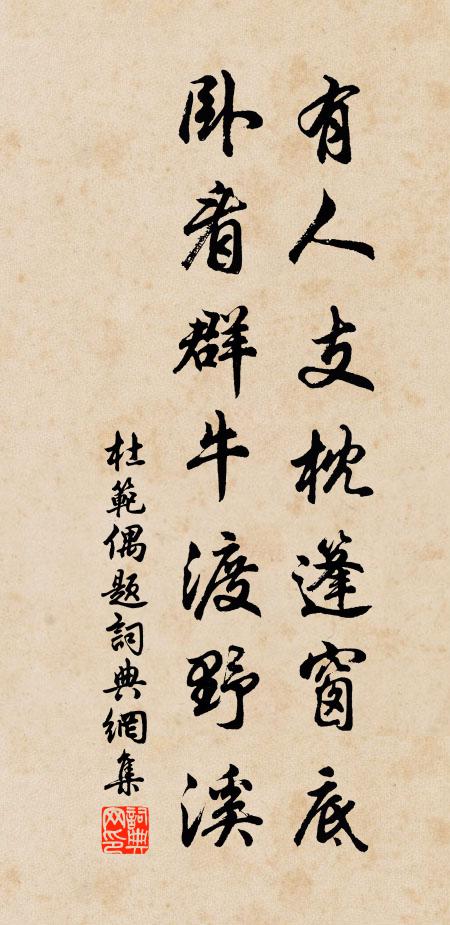 有人支枕篷窗底
卧看群牛渡野溪
杜範偶題詞典網集
詞典網印